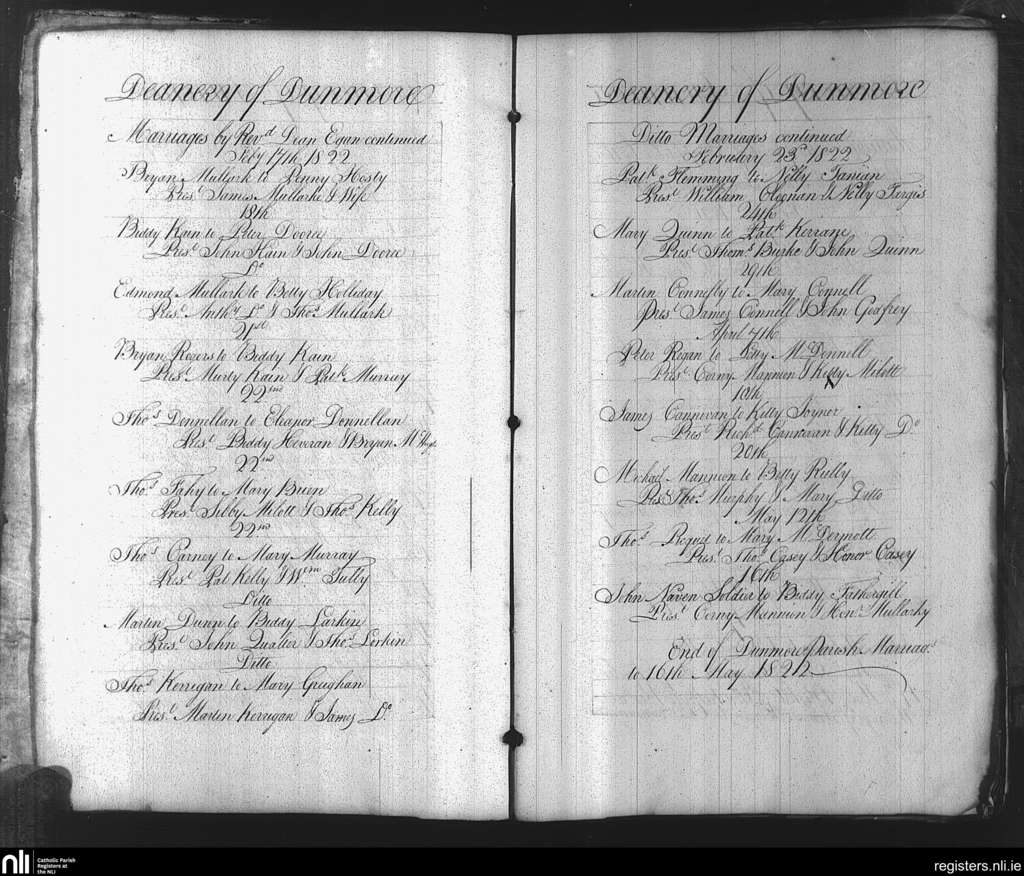 Deanery of Dunmore
Marriages by Revd Dean Egan continued
Feby 17th 1822
Bryan Mullark to Penny Hosty
Prest James Mullarke & Wife
18th
Biddy Kain to Peter Dooree
Prest John Kain & John Dooree
Do
Edmond Mullark to Betty Holliday
Prest Anthy Do & Thos Mullark
21st
Bryan Rogers to Biddy Kain
Prest Murty Kain & Patk Murray
22nd
Thos Donnellan to Eleanor Donnellan
Prest Biddy Heveran & Bryan
22nd
Thos Fahy to Mary Brien
Prest Sibby Milott & Thos Kelly
22nd
Thos Carney to Mary Murray
Prest Pat Kelly & Wm Tully
Ditto
Martin Dunn to Biddy Larkin
Prest John Qualter & Thos Larkin
Ditto
Thos Kerrigan to Mary Greghan
Prest Martin Kerrigan & James Do
Deanery of Dunmore
Ditto Marriages continued
February 23d 1822
Patk Flemming to Nelly Tanian
Prest William & Nelly Fargis
24th
Mary Quinn to Patk Kerrane
Prest Thoms Burke & John Quinn
29th
Martin Connelly to Mary Connell
Prest James Connell & John Geafrey
April 7th
Peter Regan to Kitty McDonnell
Prest Corny Mannion & Kitty Milott
10th
James Cannivan to Kitty Joyner
Prest Richd Cannivan & Kitty Do
20th
Michael Mannion to Betty Rielly
Prest Thos Murphy & Mary Ditto
May 12th
Thos to Mary McDermott
Prest Thos Casey & Honor Casey
16th
John Naven Soldier to Biddy Fathergill
Prest Corny Mannion & Honr Mullarky
End of Dunmore Parish Marriags
to 16th May 1822
nli
Catholic Parish
Registers at
the NLI
registers.nli.ie